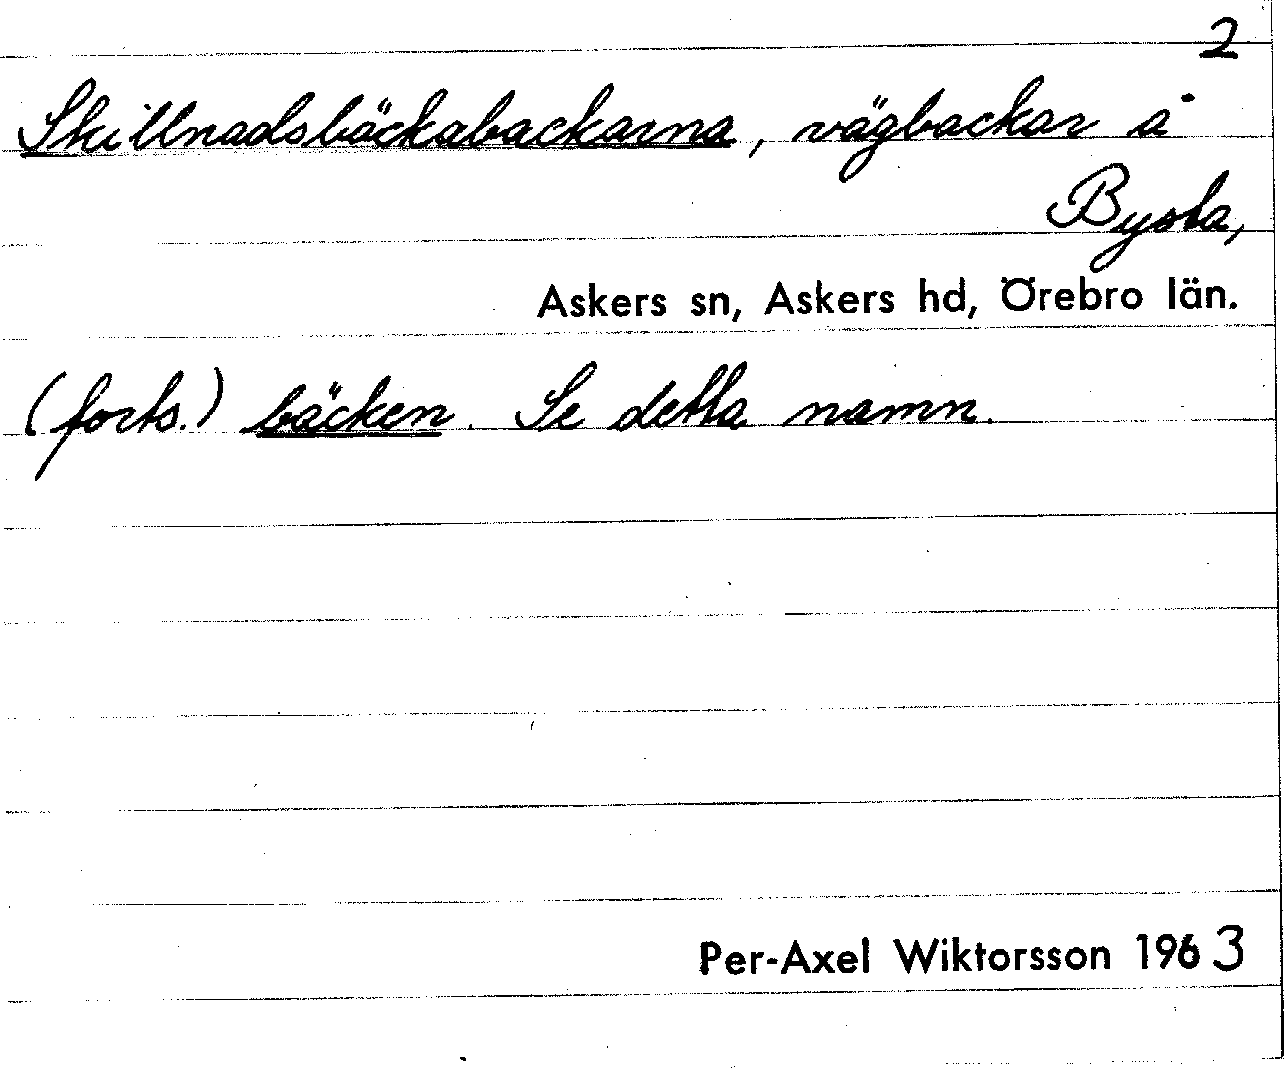 2
Skillnadsbäckabackarna, vägbackar å
Bysta,
Askers sn, Askers hd, Örebro län.
(forts.) bäcken. Se detta namn.
Per-Axel Wiktorsson 1963